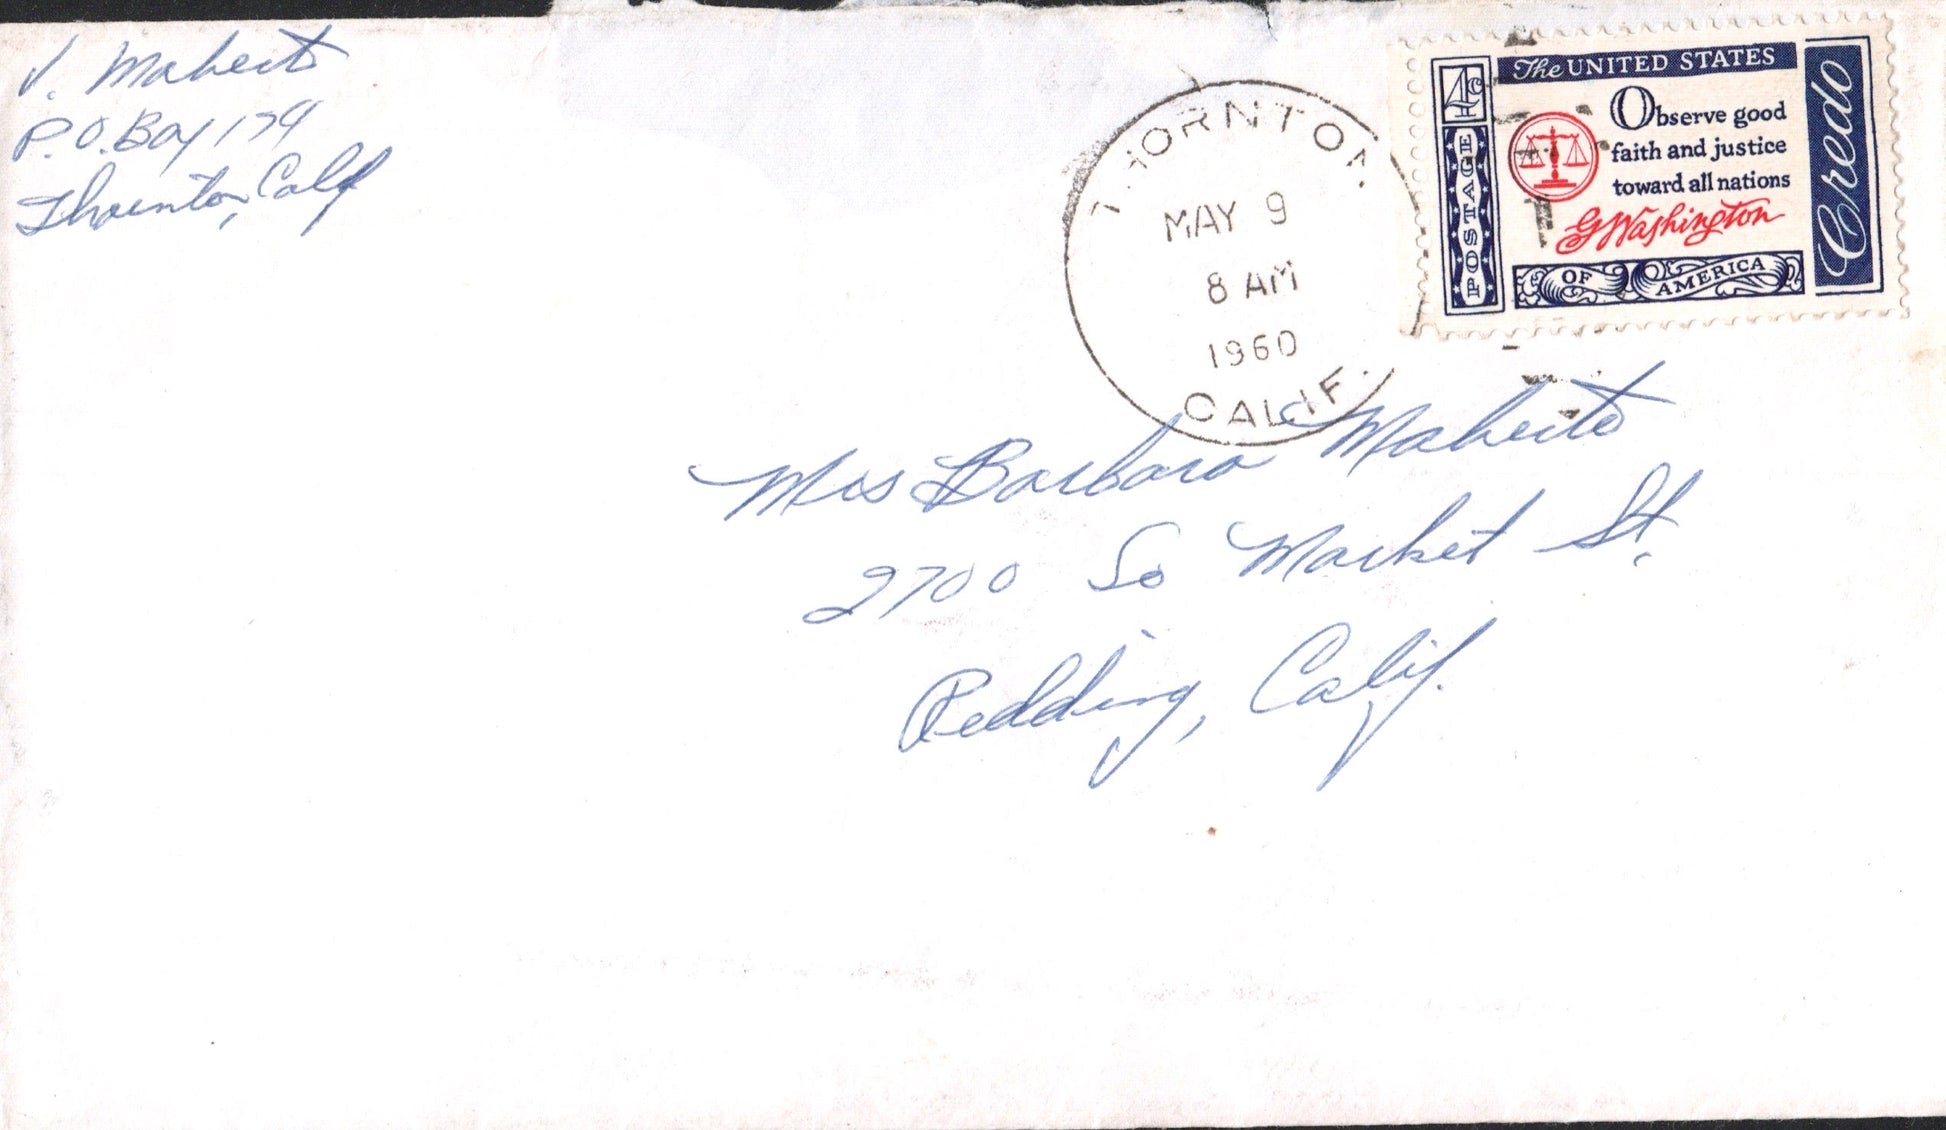 P.O. Box 179
Thornton, Calif
THORNTON
MAY 9
8 AM
1960
CALIF.
4c
POSTAGE
The UNITED STATES
Observe good
faith and justice
toward all nations
G Washington
OF AMERICA
Credo
Mrs Barbara
2700 So Market St.
Redding, Calif.